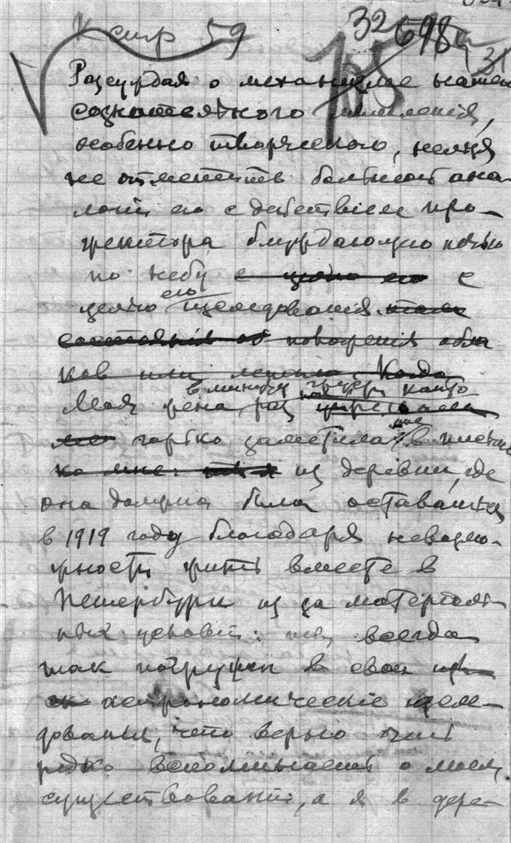 К стр 59 32 698а
31
Разсуждая о механизме наше
сознательного мышления,
особенно творческого, нельзя
не отметить большой ана
логии его с действием про-
жектора блуждающую ночью
по небу с целью его с
целью его изследования
состояния поворения обла
ков или
Моя жена раз в минуту
горько заметила мне в письме
ко мне: из деревни, где
она должна была оставаться
в 1919 году благодаря невозмо-
жности жить вместе в
Петербурги из за материаль
ных условий: ты всегда
так погружен в свои
астрономические изсле-
дования, что верно очень
редко вспоминаешь о моем
существовании, а я в дере-